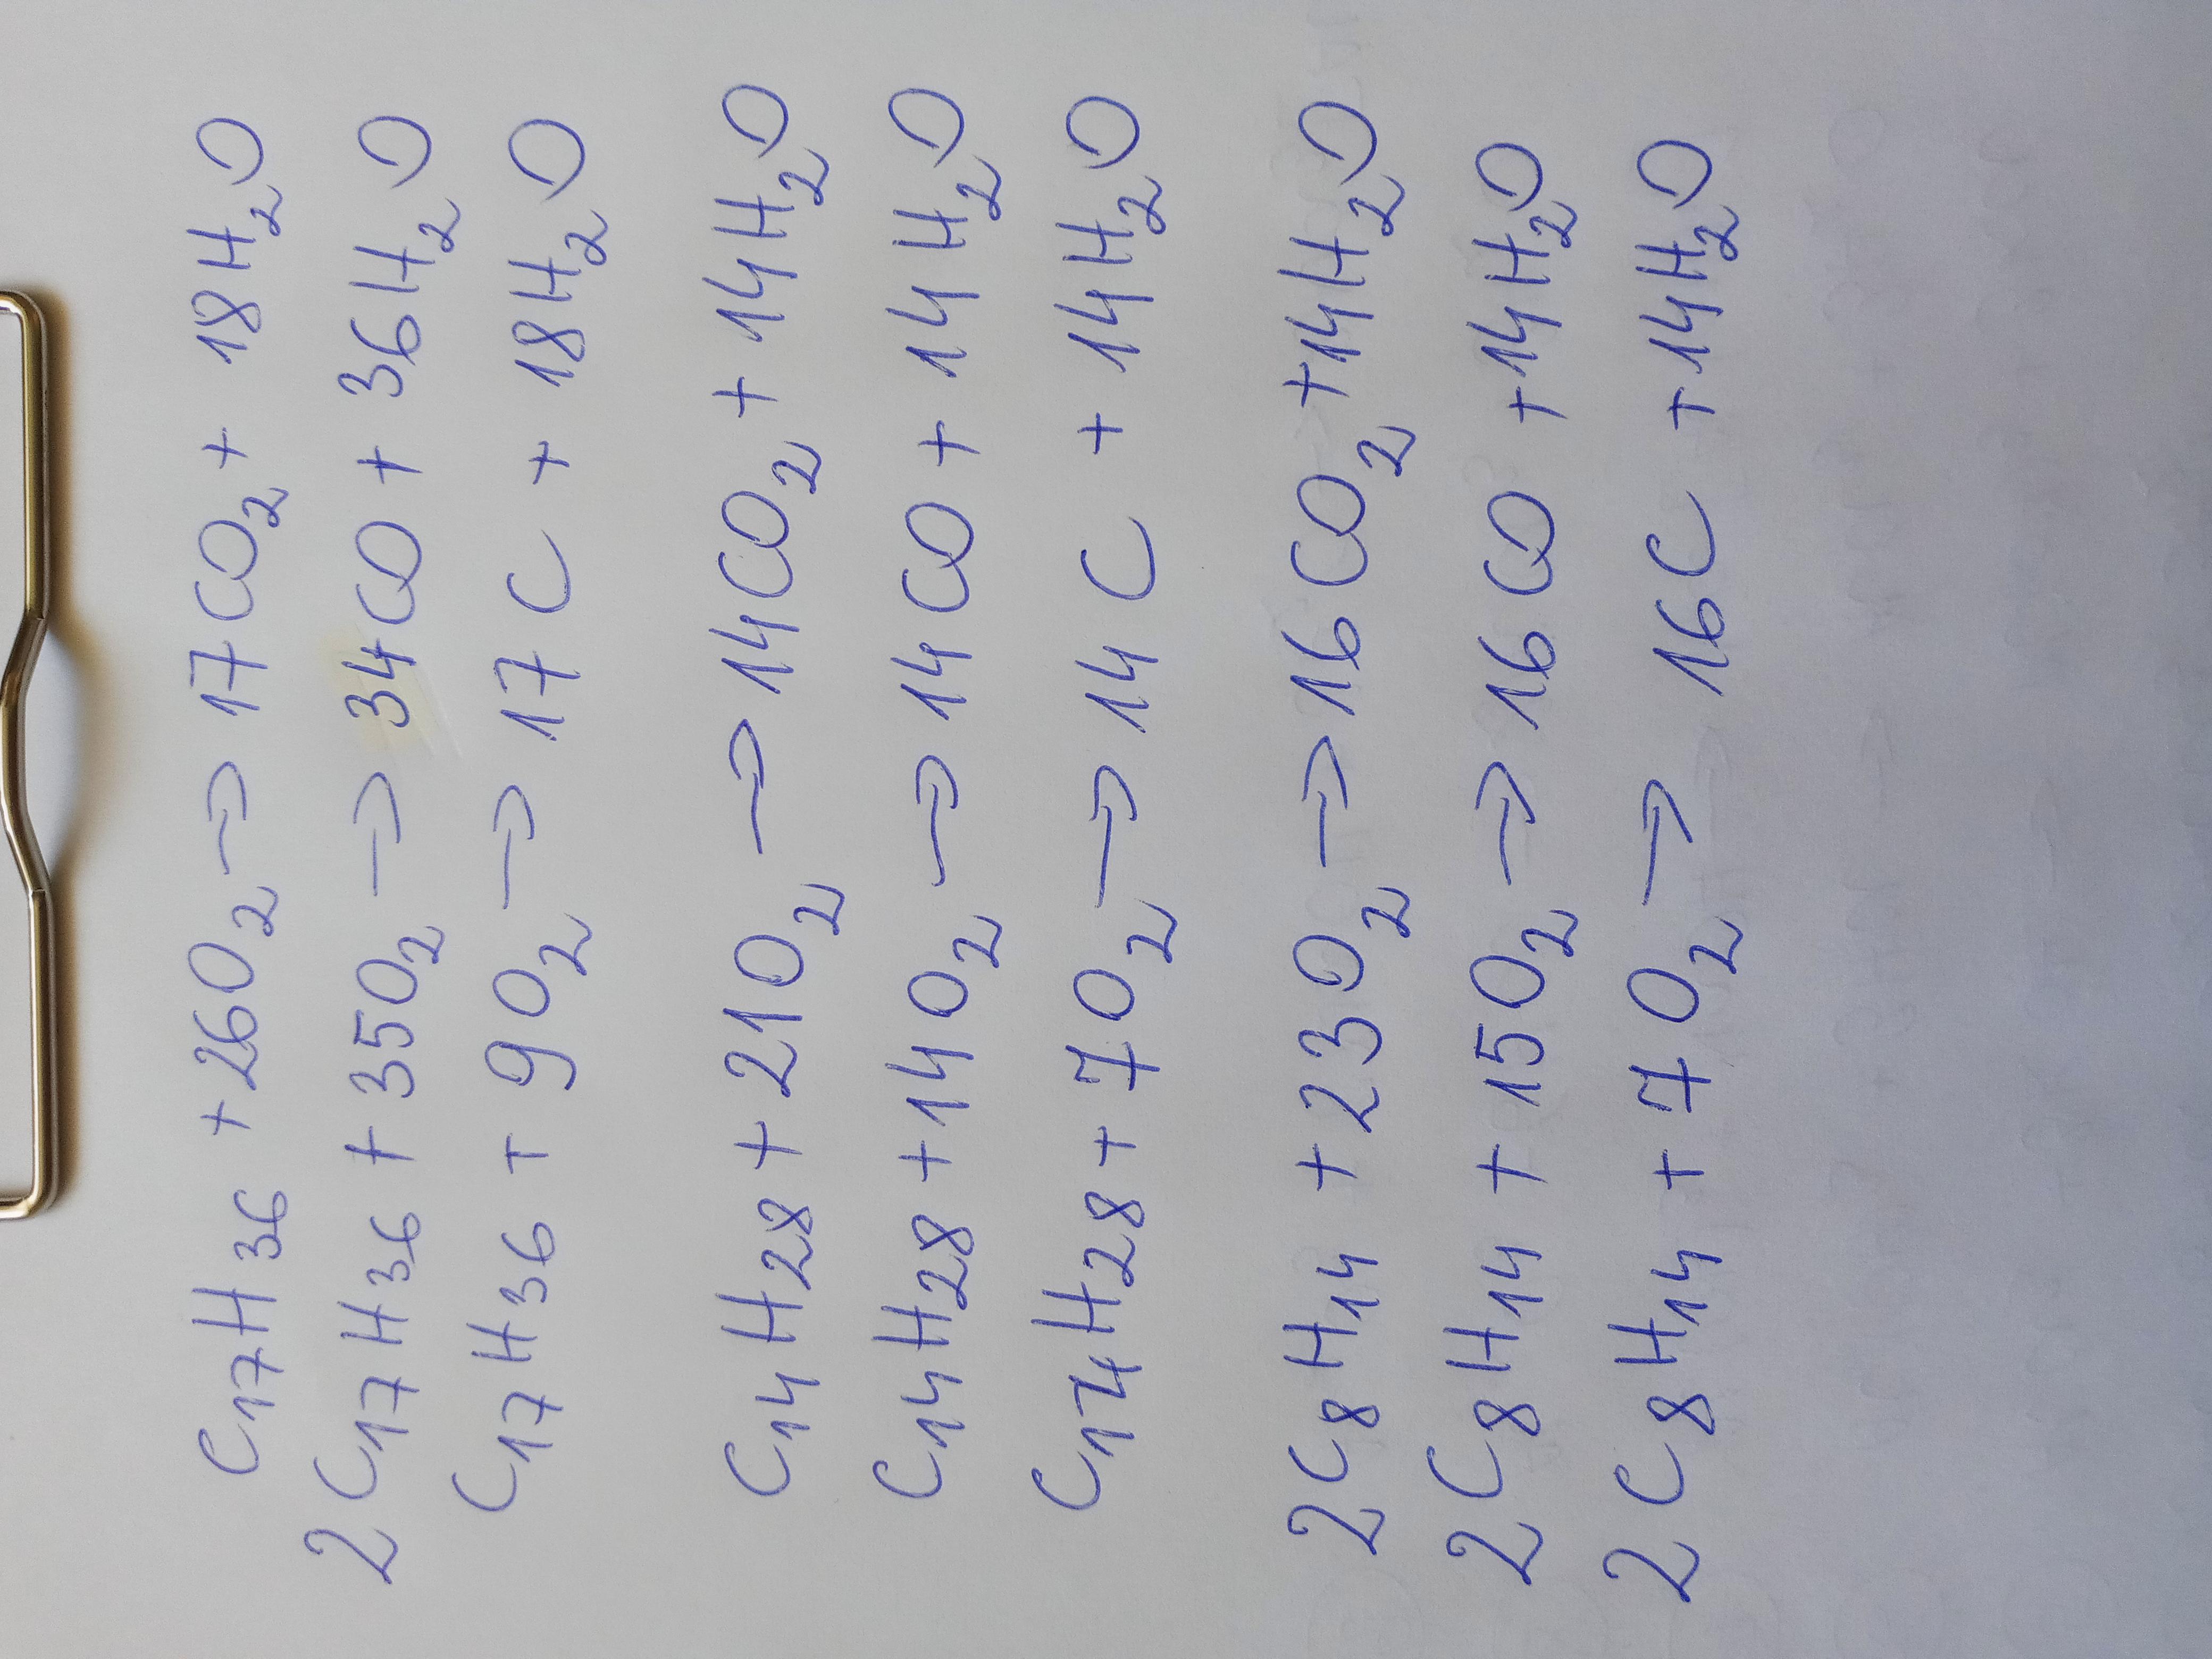 C₁₇H₃₆ + 26O₂ → 17CO₂ + 18H₂O
2C₁₇H₃₆ + 35O₂ → 34CO + 36H₂O
C₁₇H₃₆ + 9O₂ → 17C + 18H₂O
C₁₄H₂₈ + 21O₂ → 14CO₂ + 14H₂O
C₁₄H₂₈ + 14O₂ → 14CO + 14H₂O
C₁₄H₂₈ + 7O₂ → 14C + 14H₂O
2C₈H₁₄ + 23O₂ → 16CO₂ + 14H₂O
2C₈H₁₄ + 15O₂ → 16CO + 14H₂O
2C₈H₁₄ + 7O₂ → 16C + 14H₂O